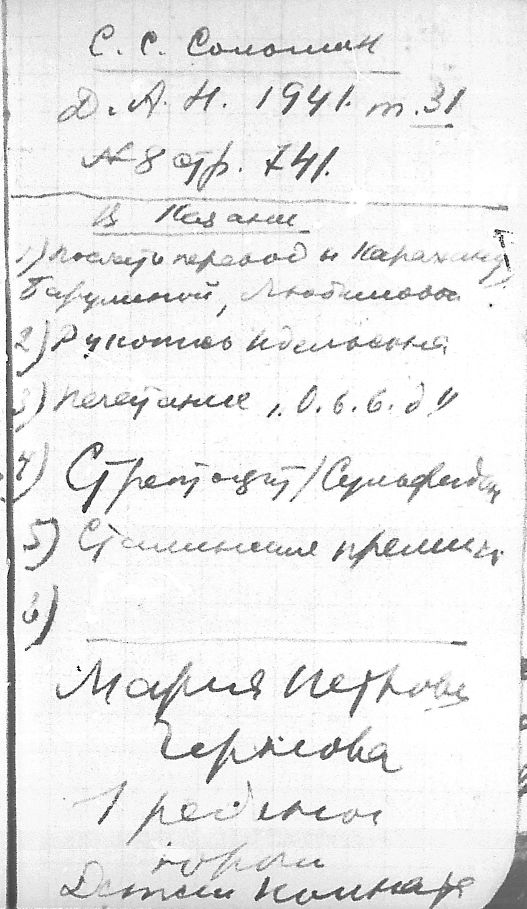 С. С. Соломин
Д.А.Н. 1941. т. 31
№ 8 стр. 741.
В Казани
1) послать перевод в Караганду
2) Рукопись Идельсона
3) печатание „О.б.б.д"
4) Стрептоцит/Сульфидин
5) Сталинская премия
6)
Мария Петровна
Чернова
1 ребенок
Детская комната